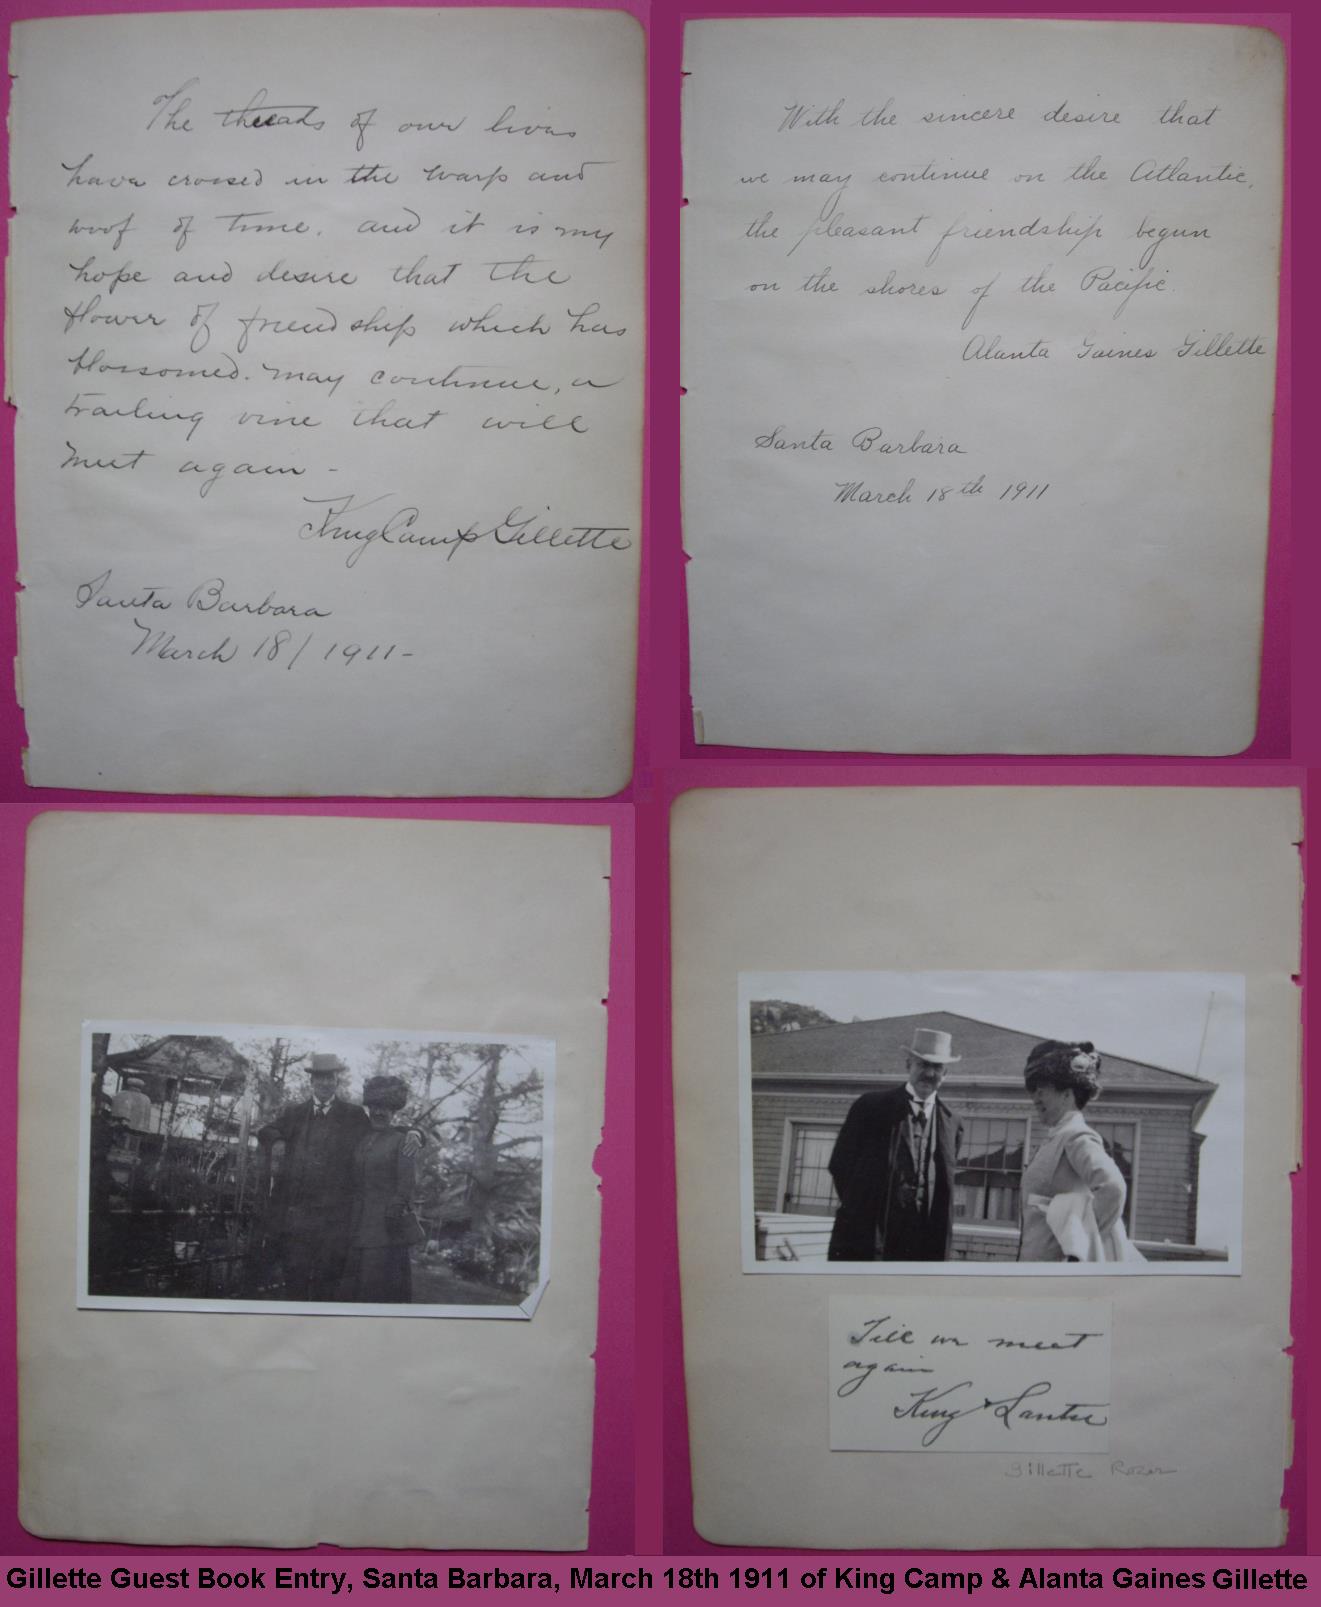 The threads of our lives
have crossed in the warp and
woof of time. and it is my
hope and desire that the
flower of friendship which has
blossomed. may continue, a
trailing vine that will
meet again -
King Camp Gillette
Santa Barbara
March 18/1911-
With the sincere desire that
we may continue on the Atlantic,
the pleasant friendship begun
on the shores of the Pacific.
Alanta Gaines Gillette
Santa Barbara
March 18th 1911
Till we meet
again
King & Lantie
Gillette Razor
Gillette Guest Book Entry, Santa Barbara, March 18th 1911 of King Camp & Alanta Gaines Gillette